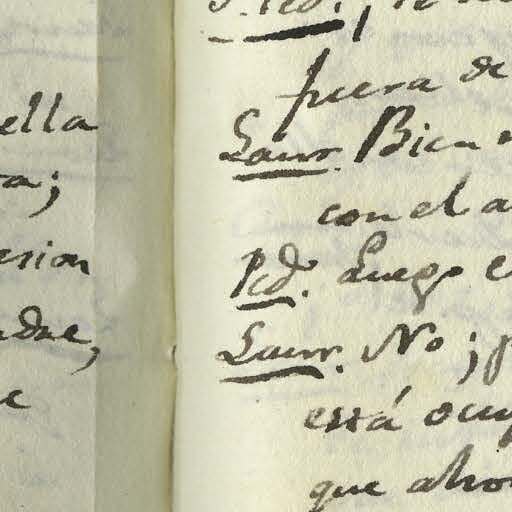 ella
ra;
esion
adre,
fuera de
Laur. Bien
con el a
Ped. Luego e
Laur. No; p
está ocup
que ahor